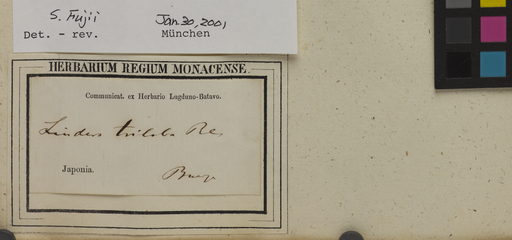 S. Fujii Jan. 30, 2001
Det. - rev. München
HERBARIUM REGIUM MONACENSE.
Communicat. ex Herbario Lugduno-Batavo.
Lindera triloba
Japonia.